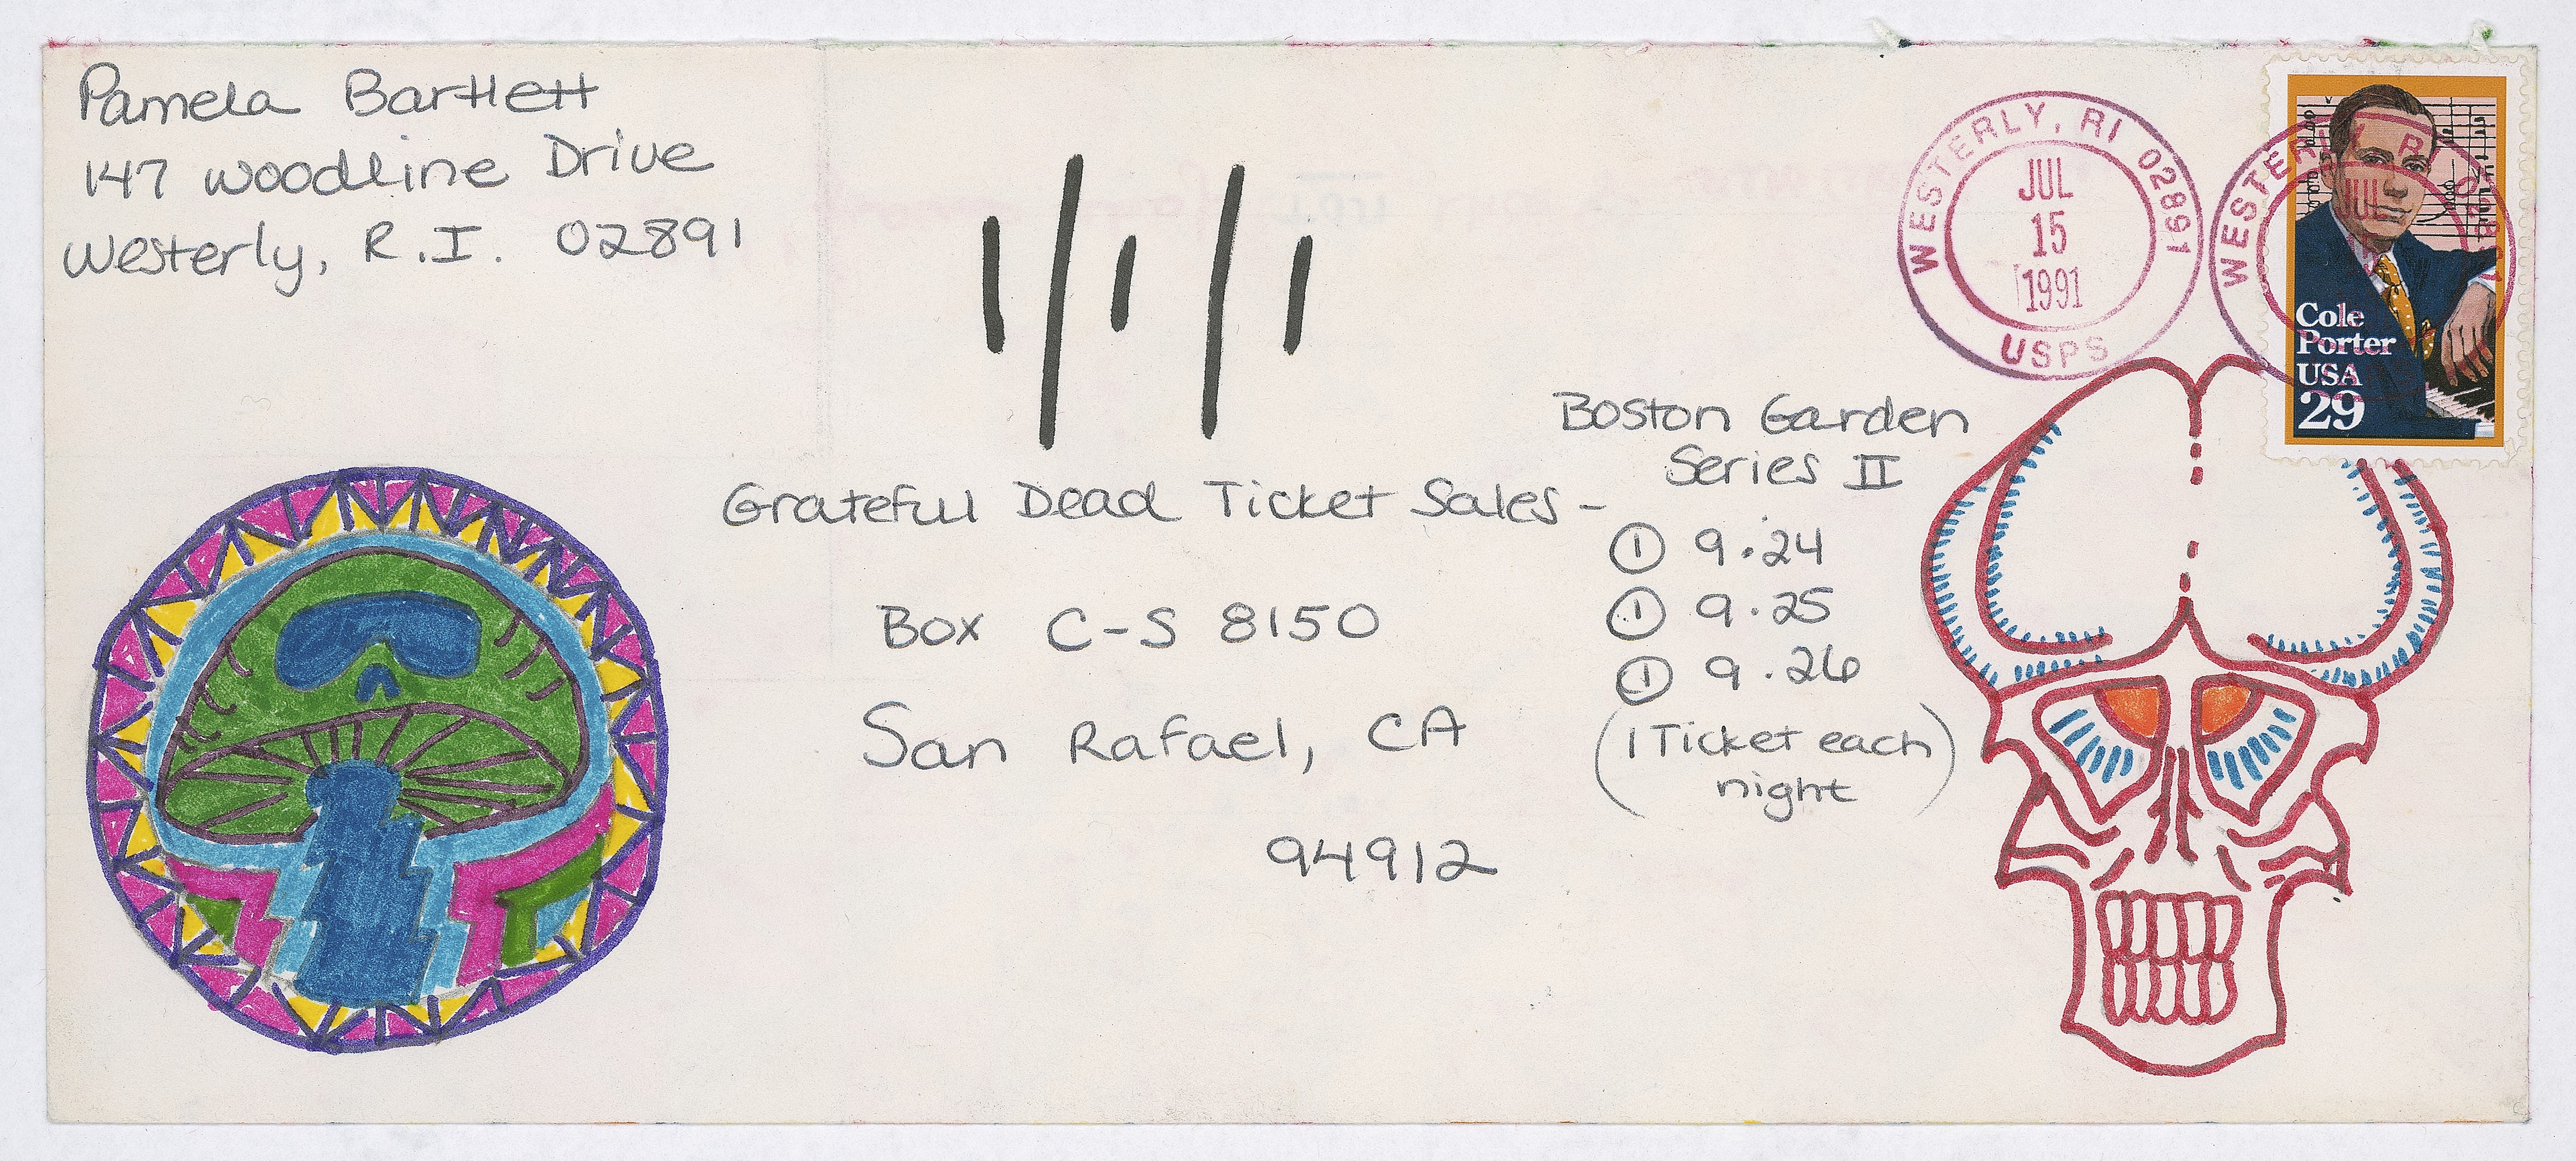 Pamela Bartlett
147 Woodline Drive
Westerly, R.I. 02891
WESTERLY, RI 02891
JUL
15
1991
USPS
WESTERLY, RI 02891
JUL
Cole
Porter
USA
29
Boston Garden
Series II
Grateful Dead Ticket Sales-
① 9.24
Box C-S 8150
① 9.25
① 9.26
San Rafael, CA
(1 Ticket each
night)
94912